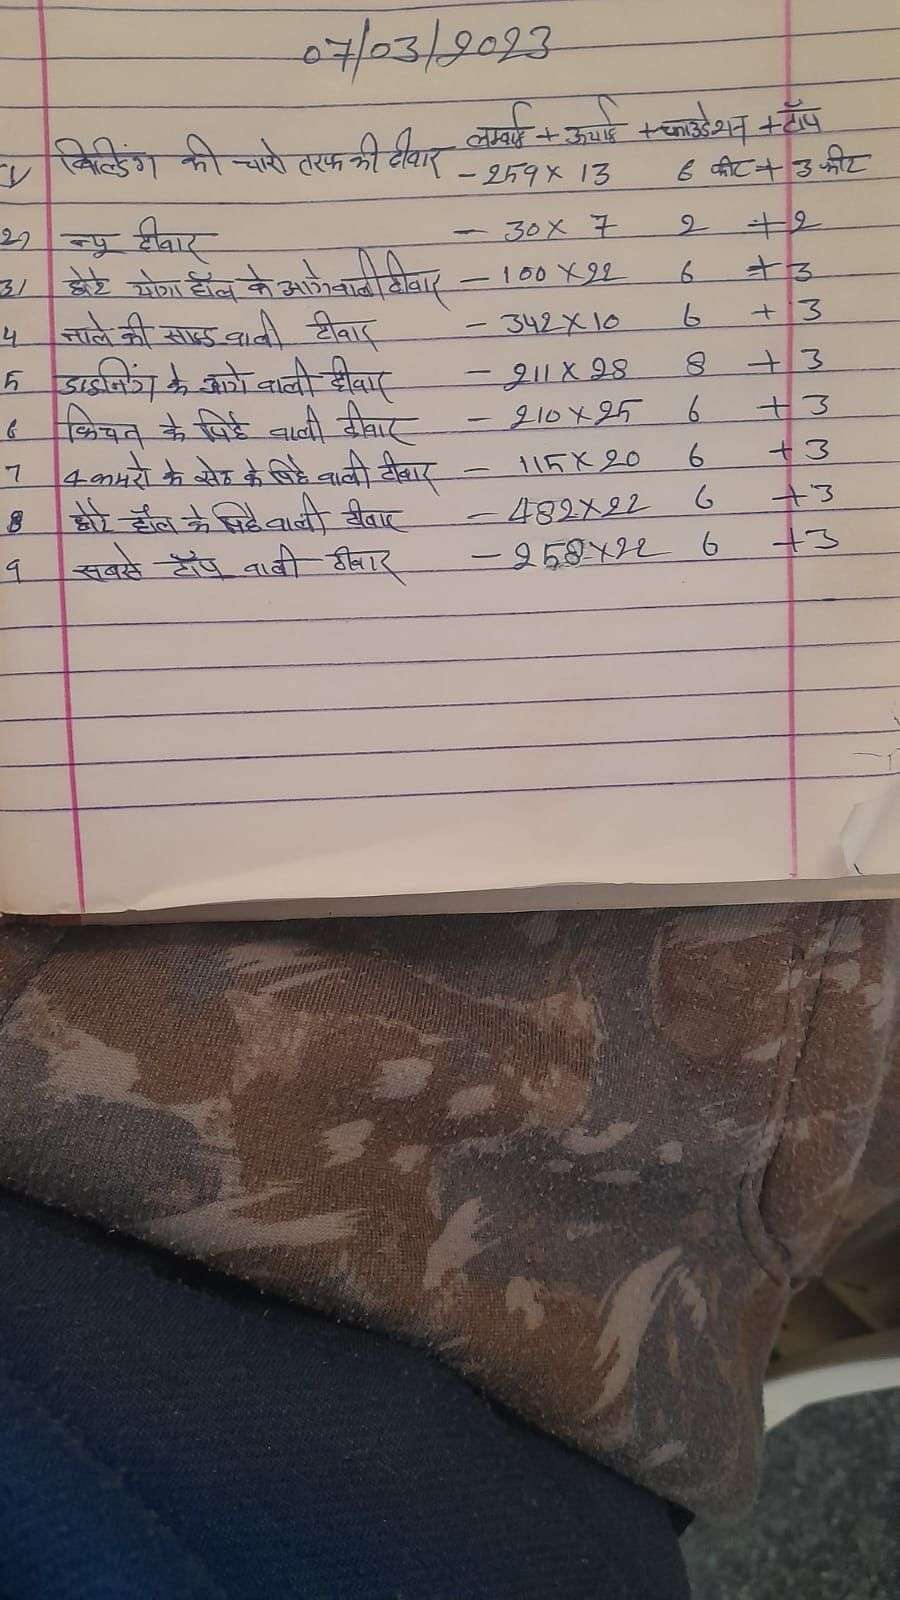 07/03/2023
लम्बाई + ऊचाई + फाउंडेशन + टॉप
1) बिल्डिंग की चारो तरफ की दीवार - 259 x 13 6 फीट + 3 फीट
2) न्यू दीवार - 30 x 7 2 + 2
3) छोटे योगा हॉल के आगे वाली दीवार - 100 x 22 6 + 3
4 नाले की साइड वाली दीवार - 342 x 10 6 + 3
5 डाइनिंग के आगे वाली दीवार - 211 x 28 8 + 3
6 किचन के पिछे वाली दीवार - 210 x 25 6 + 3
7 4 कमरो के सेट के पिछे वाली दीवार - 115 x 20 6 + 3
8 छोटे हॉल के पिछे वाली दीवार - 482 x 22 6 + 3
9 सबसे टॉप वाली दीवार - 258 x 22 6 + 3